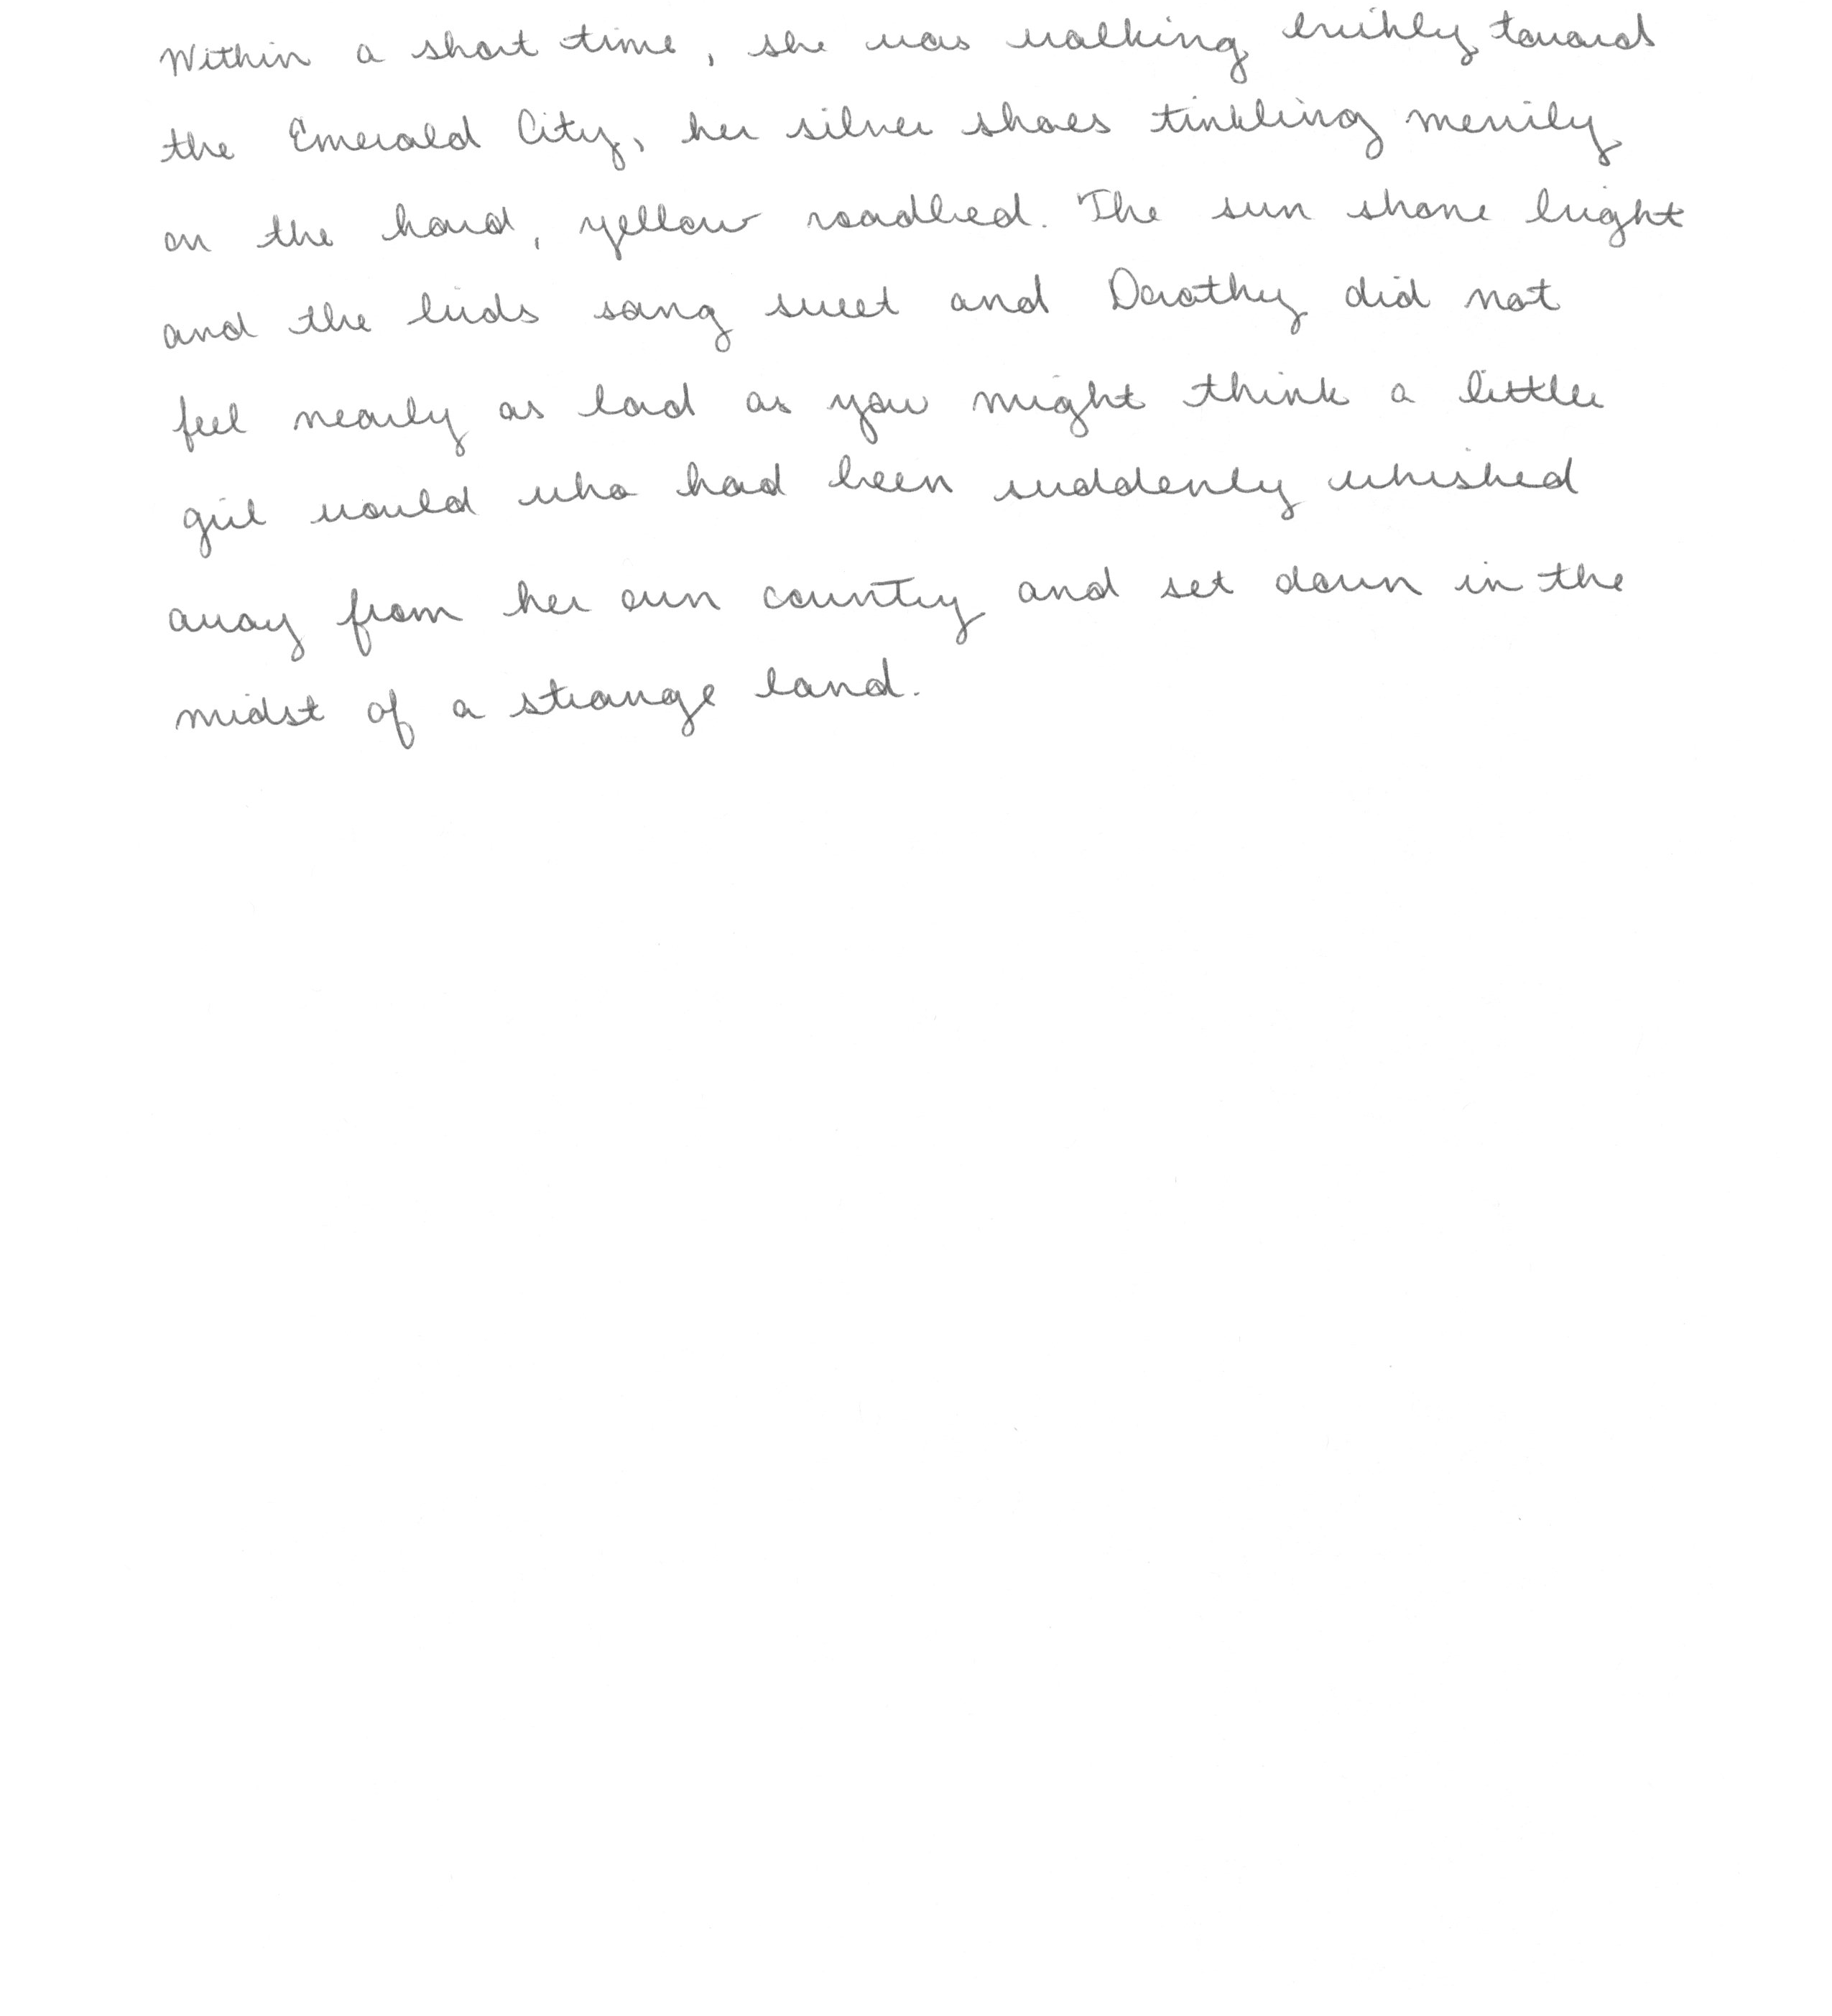 Within a short time, she was walking briskly toward
the Emerald City, her silver shoes tinkling merrily
on the hard, yellow roadbed. The sun shone bright
and the birds sang sweet and Dorothy did not
feel nearly as bad as you might think a little
girl would who had been suddenly whisked
away from her own country and set down in the
midst of a strange land.